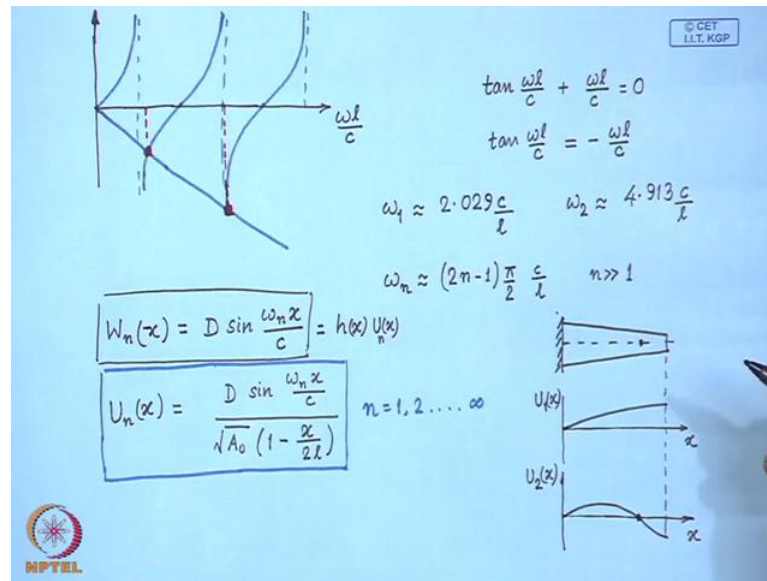 © CET
I.I.T. KGP
ωl/c
tan ωl/c + ωl/c = 0
tan ωl/c = - ωl/c
ω₁ ≈ 2.029 c/l   ω₂ ≈ 4.913 c/l
ωₙ ≈ (2n-1) π/2 c/l   n>>1
Wₙ(x) = D sin ωₙx/c = h(x) Uₙ(x)
Uₙ(x) = D sin ωₙx/c / √A₀ (1 - x/2l)   n=1, 2 .... ∞
U₁(x)
x
U₂(x)
x
NPTEL